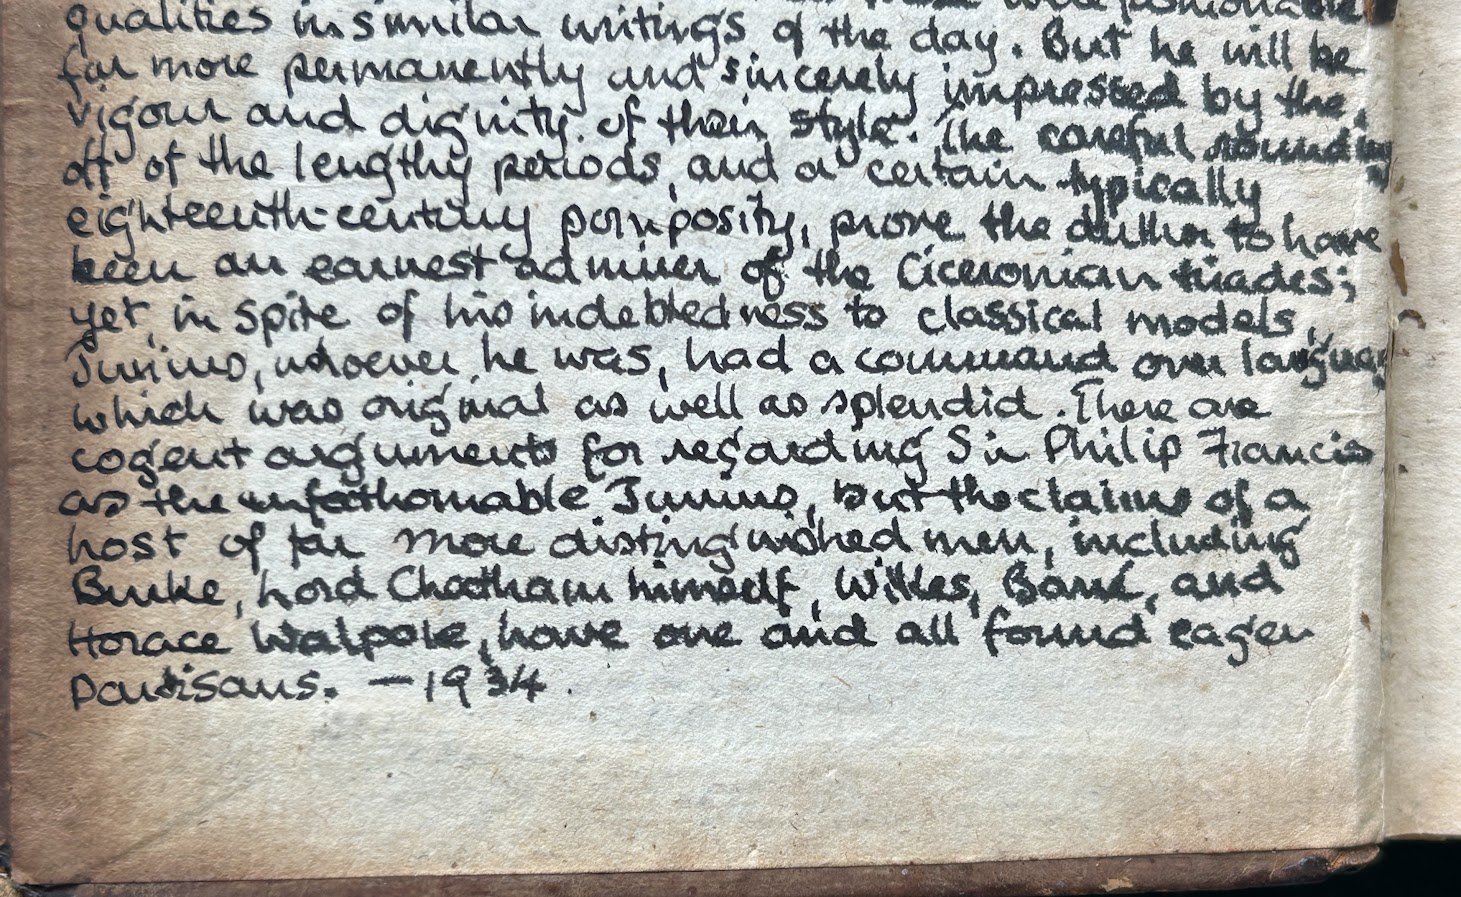 were fashionable
qualities in similar writings of the day. But he will be
far more permanently and sincerely impressed by the
vigour and dignity of their style. The careful rounding
off of the lengthy periods, and a certain typically
eighteenth-century pomposity, prove the author to have
been an earnest admirer of the Ciceronian tirades;
yet, in spite of his indebtedness to classical models,
Junius, whoever he was, had a command over language
which was original as well as splendid. There are
cogent arguments for regarding Sir Philip Francis
as the unfathomable Junius, but the claims of a
host of far more distinguished men, including
Burke, Lord Chatham himself, Wilkes, Barré, and
Horace Walpole, have one and all found eager
partisans. — 1934.